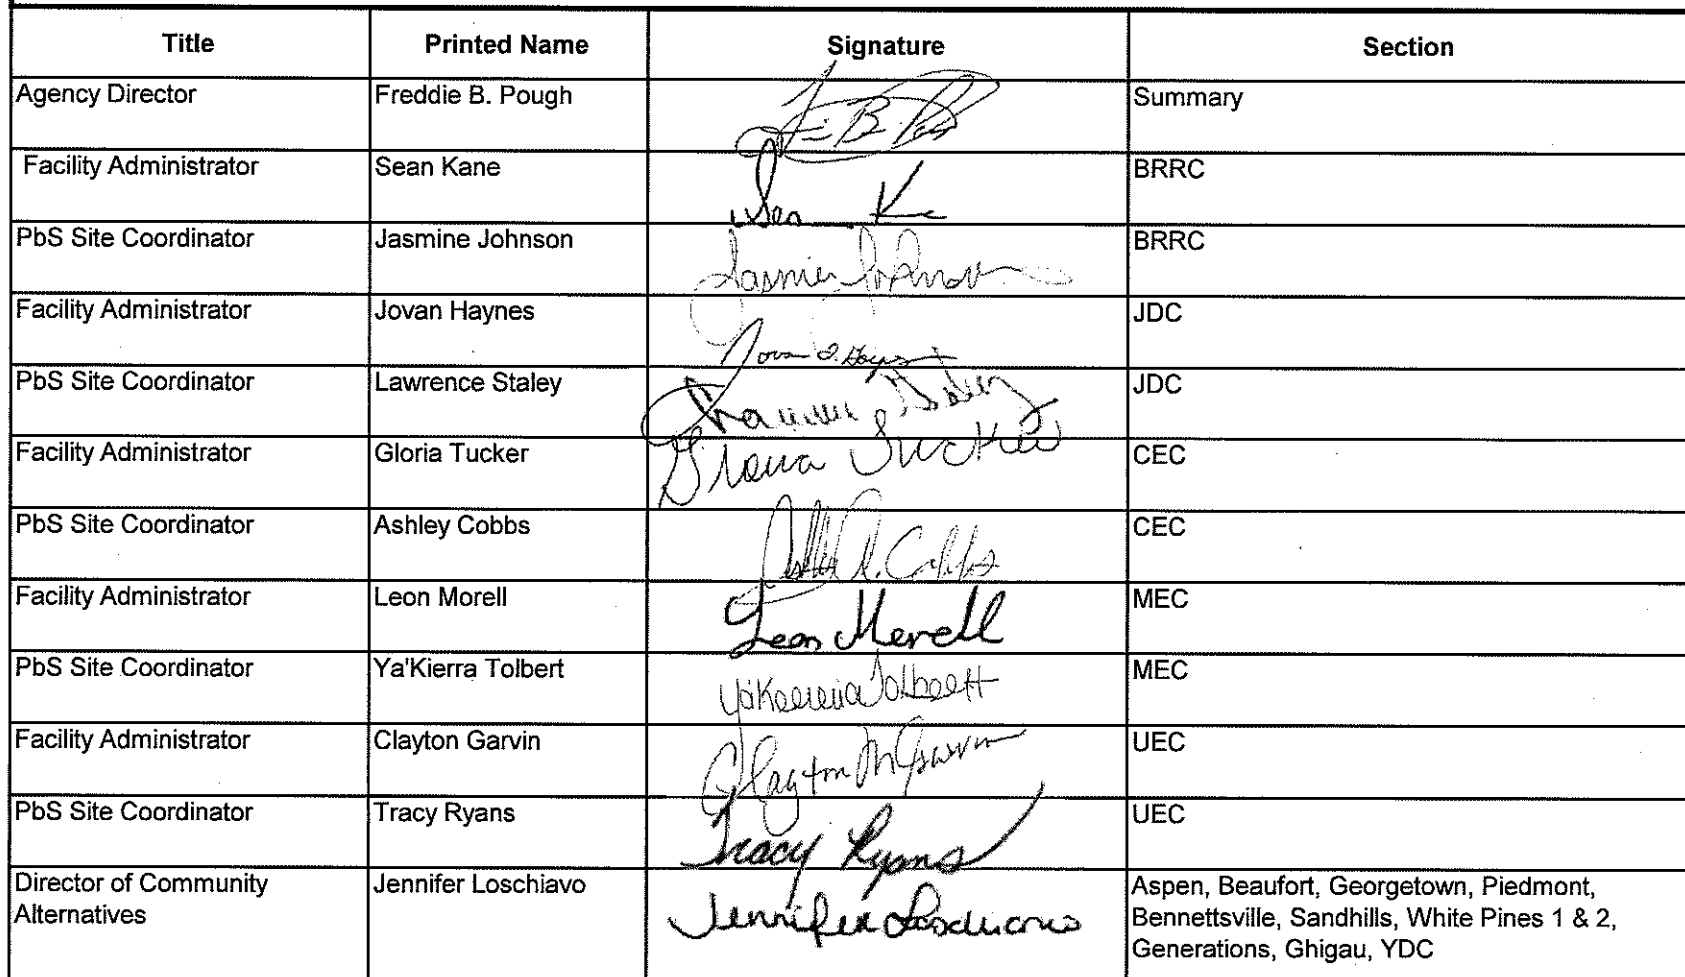 Title Printed Name Signature Section
Agency Director Freddie B. Pough Summary
Facility Administrator Sean Kane Sean K BRRC
PbS Site Coordinator Jasmine Johnson Jasmine Johnson BRRC
Facility Administrator Jovan Haynes JDC
PbS Site Coordinator Lawrence Staley JDC
Facility Administrator Gloria Tucker Gloria Tucker CEC
PbS Site Coordinator Ashley Cobbs Ashley A. Cobbs CEC
Facility Administrator Leon Morell Leon Morell MEC
PbS Site Coordinator Ya'Kierra Tolbert Ya'Kierra Tolbert MEC
Facility Administrator Clayton Garvin Clayton M Garvin UEC
PbS Site Coordinator Tracy Ryans Tracy Ryans UEC
Director of Community Jennifer Loschiavo Jennifer Loschiavo Aspen, Beaufort, Georgetown, Piedmont,
Alternatives Bennettsville, Sandhills, White Pines 1 & 2,
Generations, Ghigau, YDC